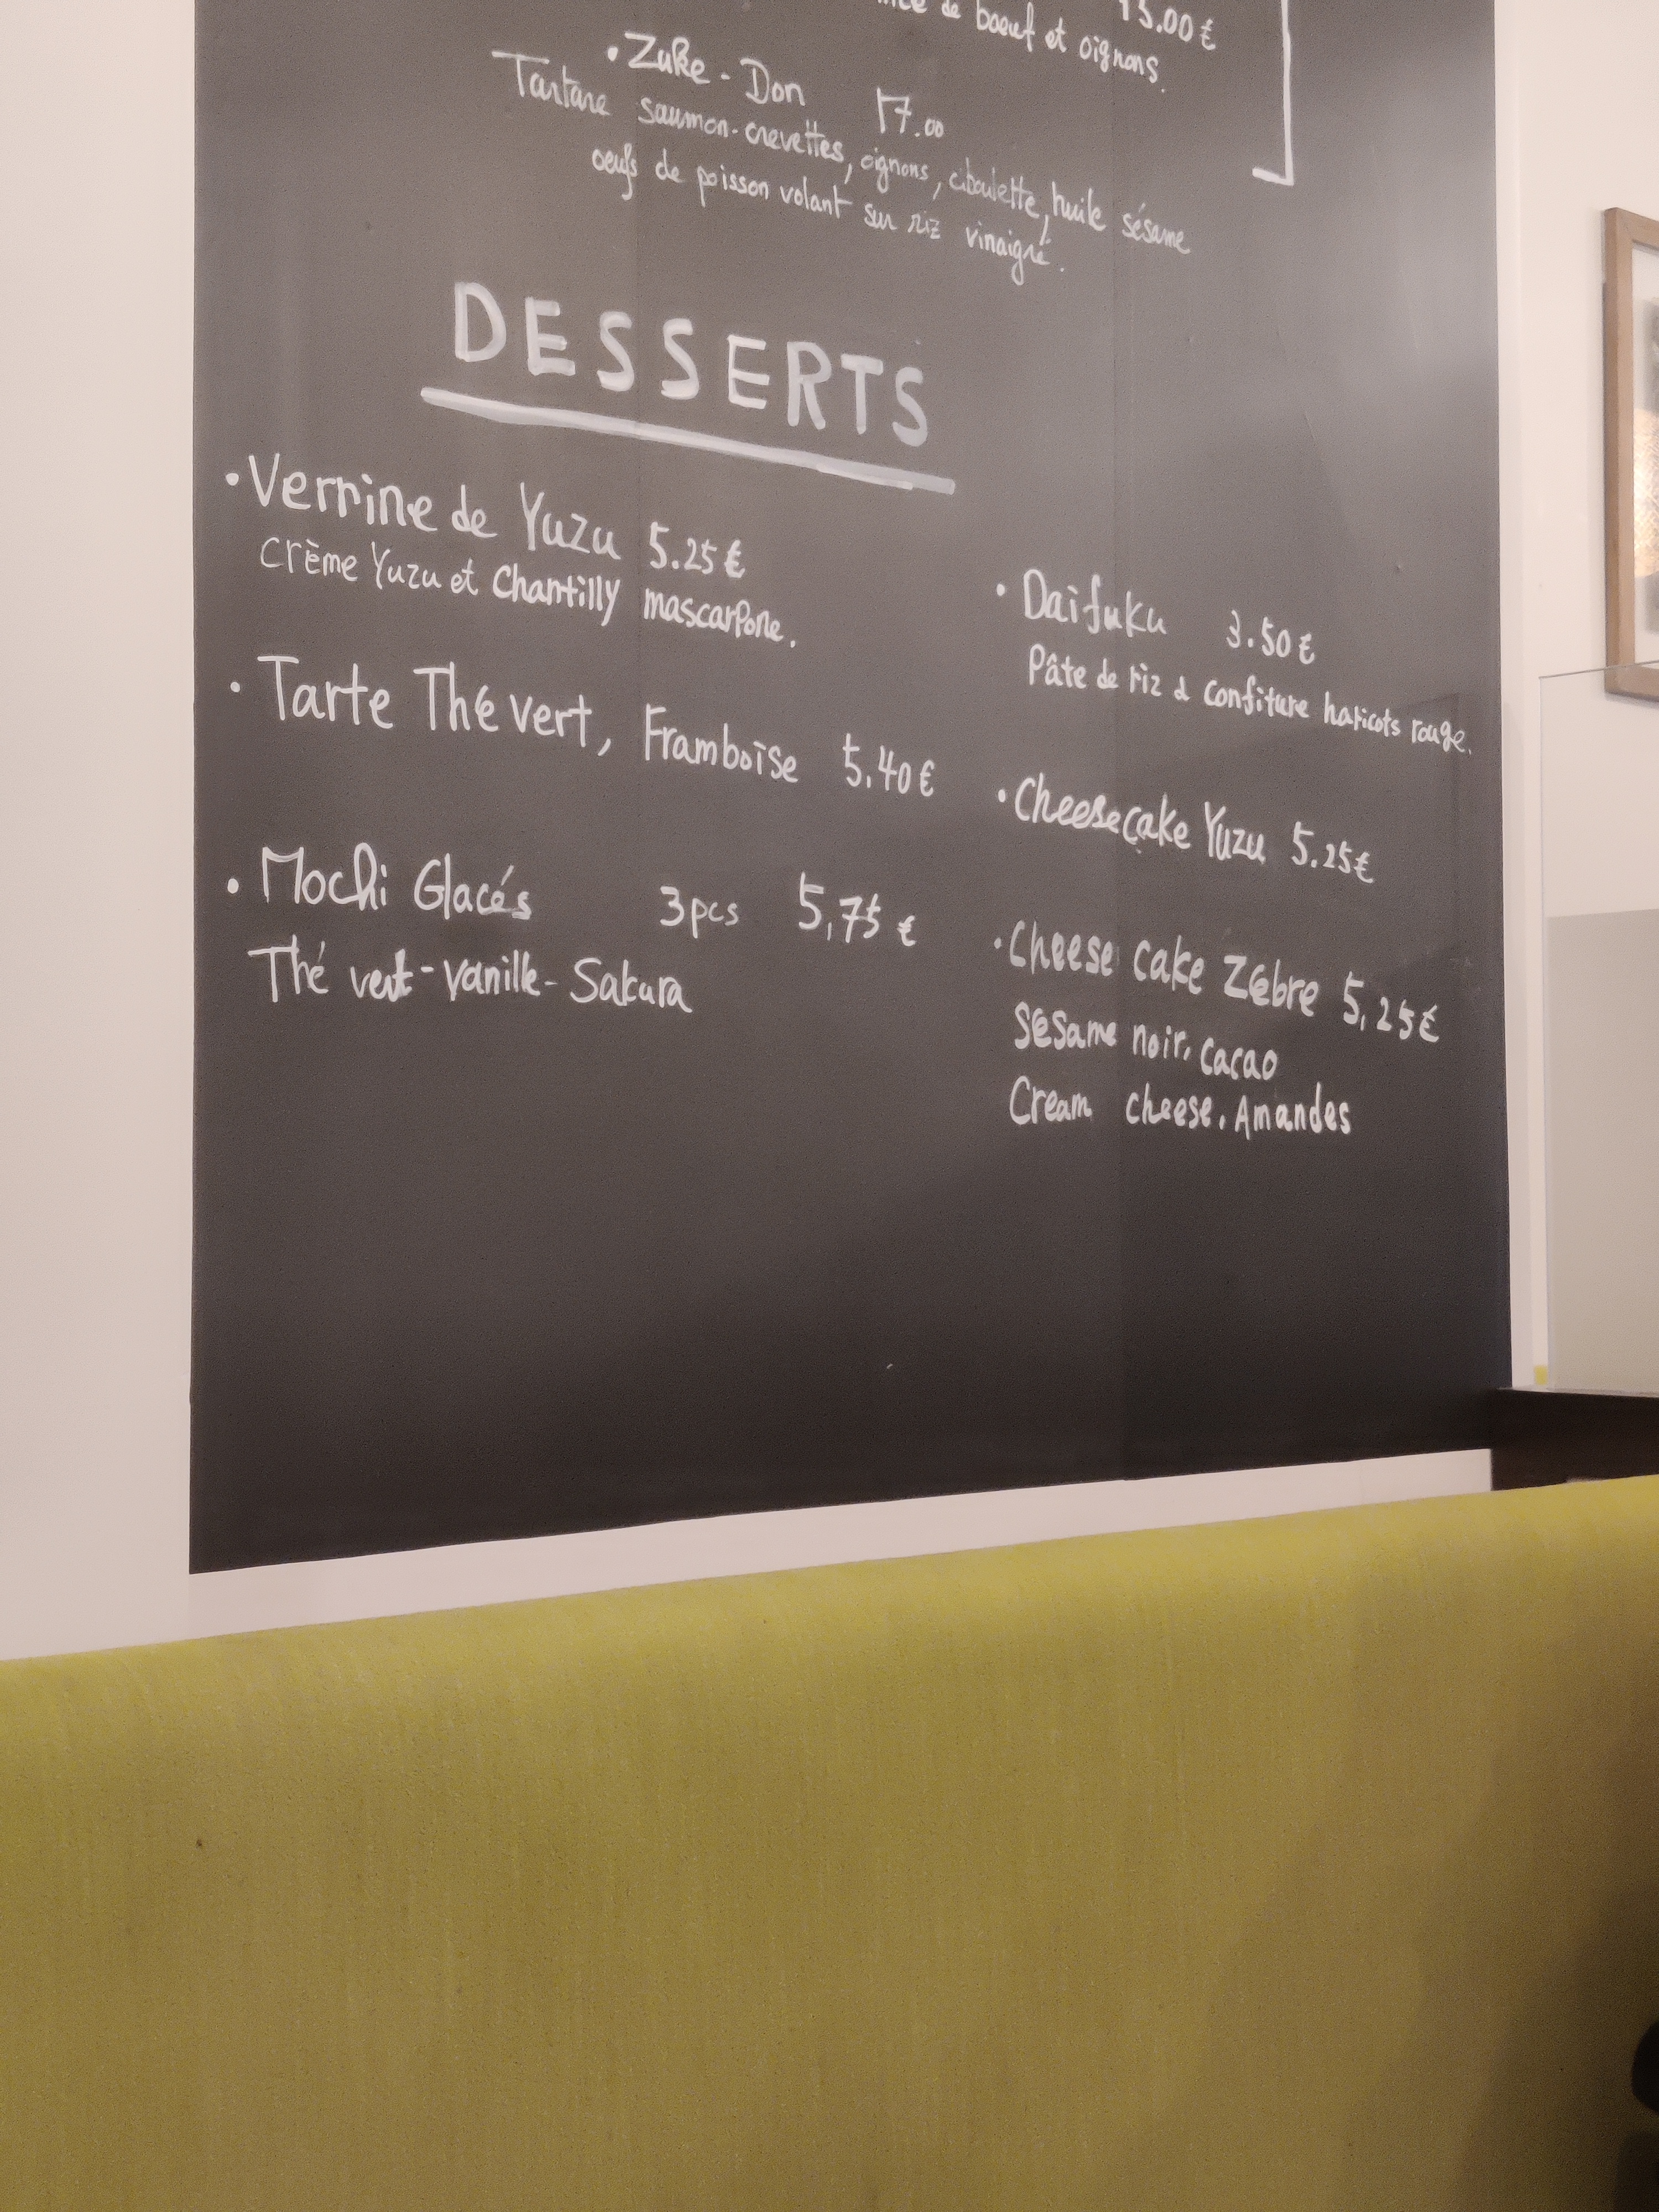 de boeuf et oignons. 15.00 €
• Zuke - Don 17.00
Tartare saumon-crevettes, oignons, ciboulette, huile sésame
oeufs de poisson volant sur riz vinaigré.
DESSERTS
• Verrine de Yuzu 5.25 €
Crème Yuzu et Chantilly mascarpone.
• Tarte Thé vert, Framboise 5.40 €
• Mochi Glacés 3 pcs 5,75 €
Thé vert - vanille - Sakura
• Daifuku 3.50 €
Pâte de riz & confiture haricots rouge.
• Cheesecake Yuzu 5.25 €
• Cheese cake Zèbre 5,25 €
Sésame noir, cacao
Cream cheese, Amandes